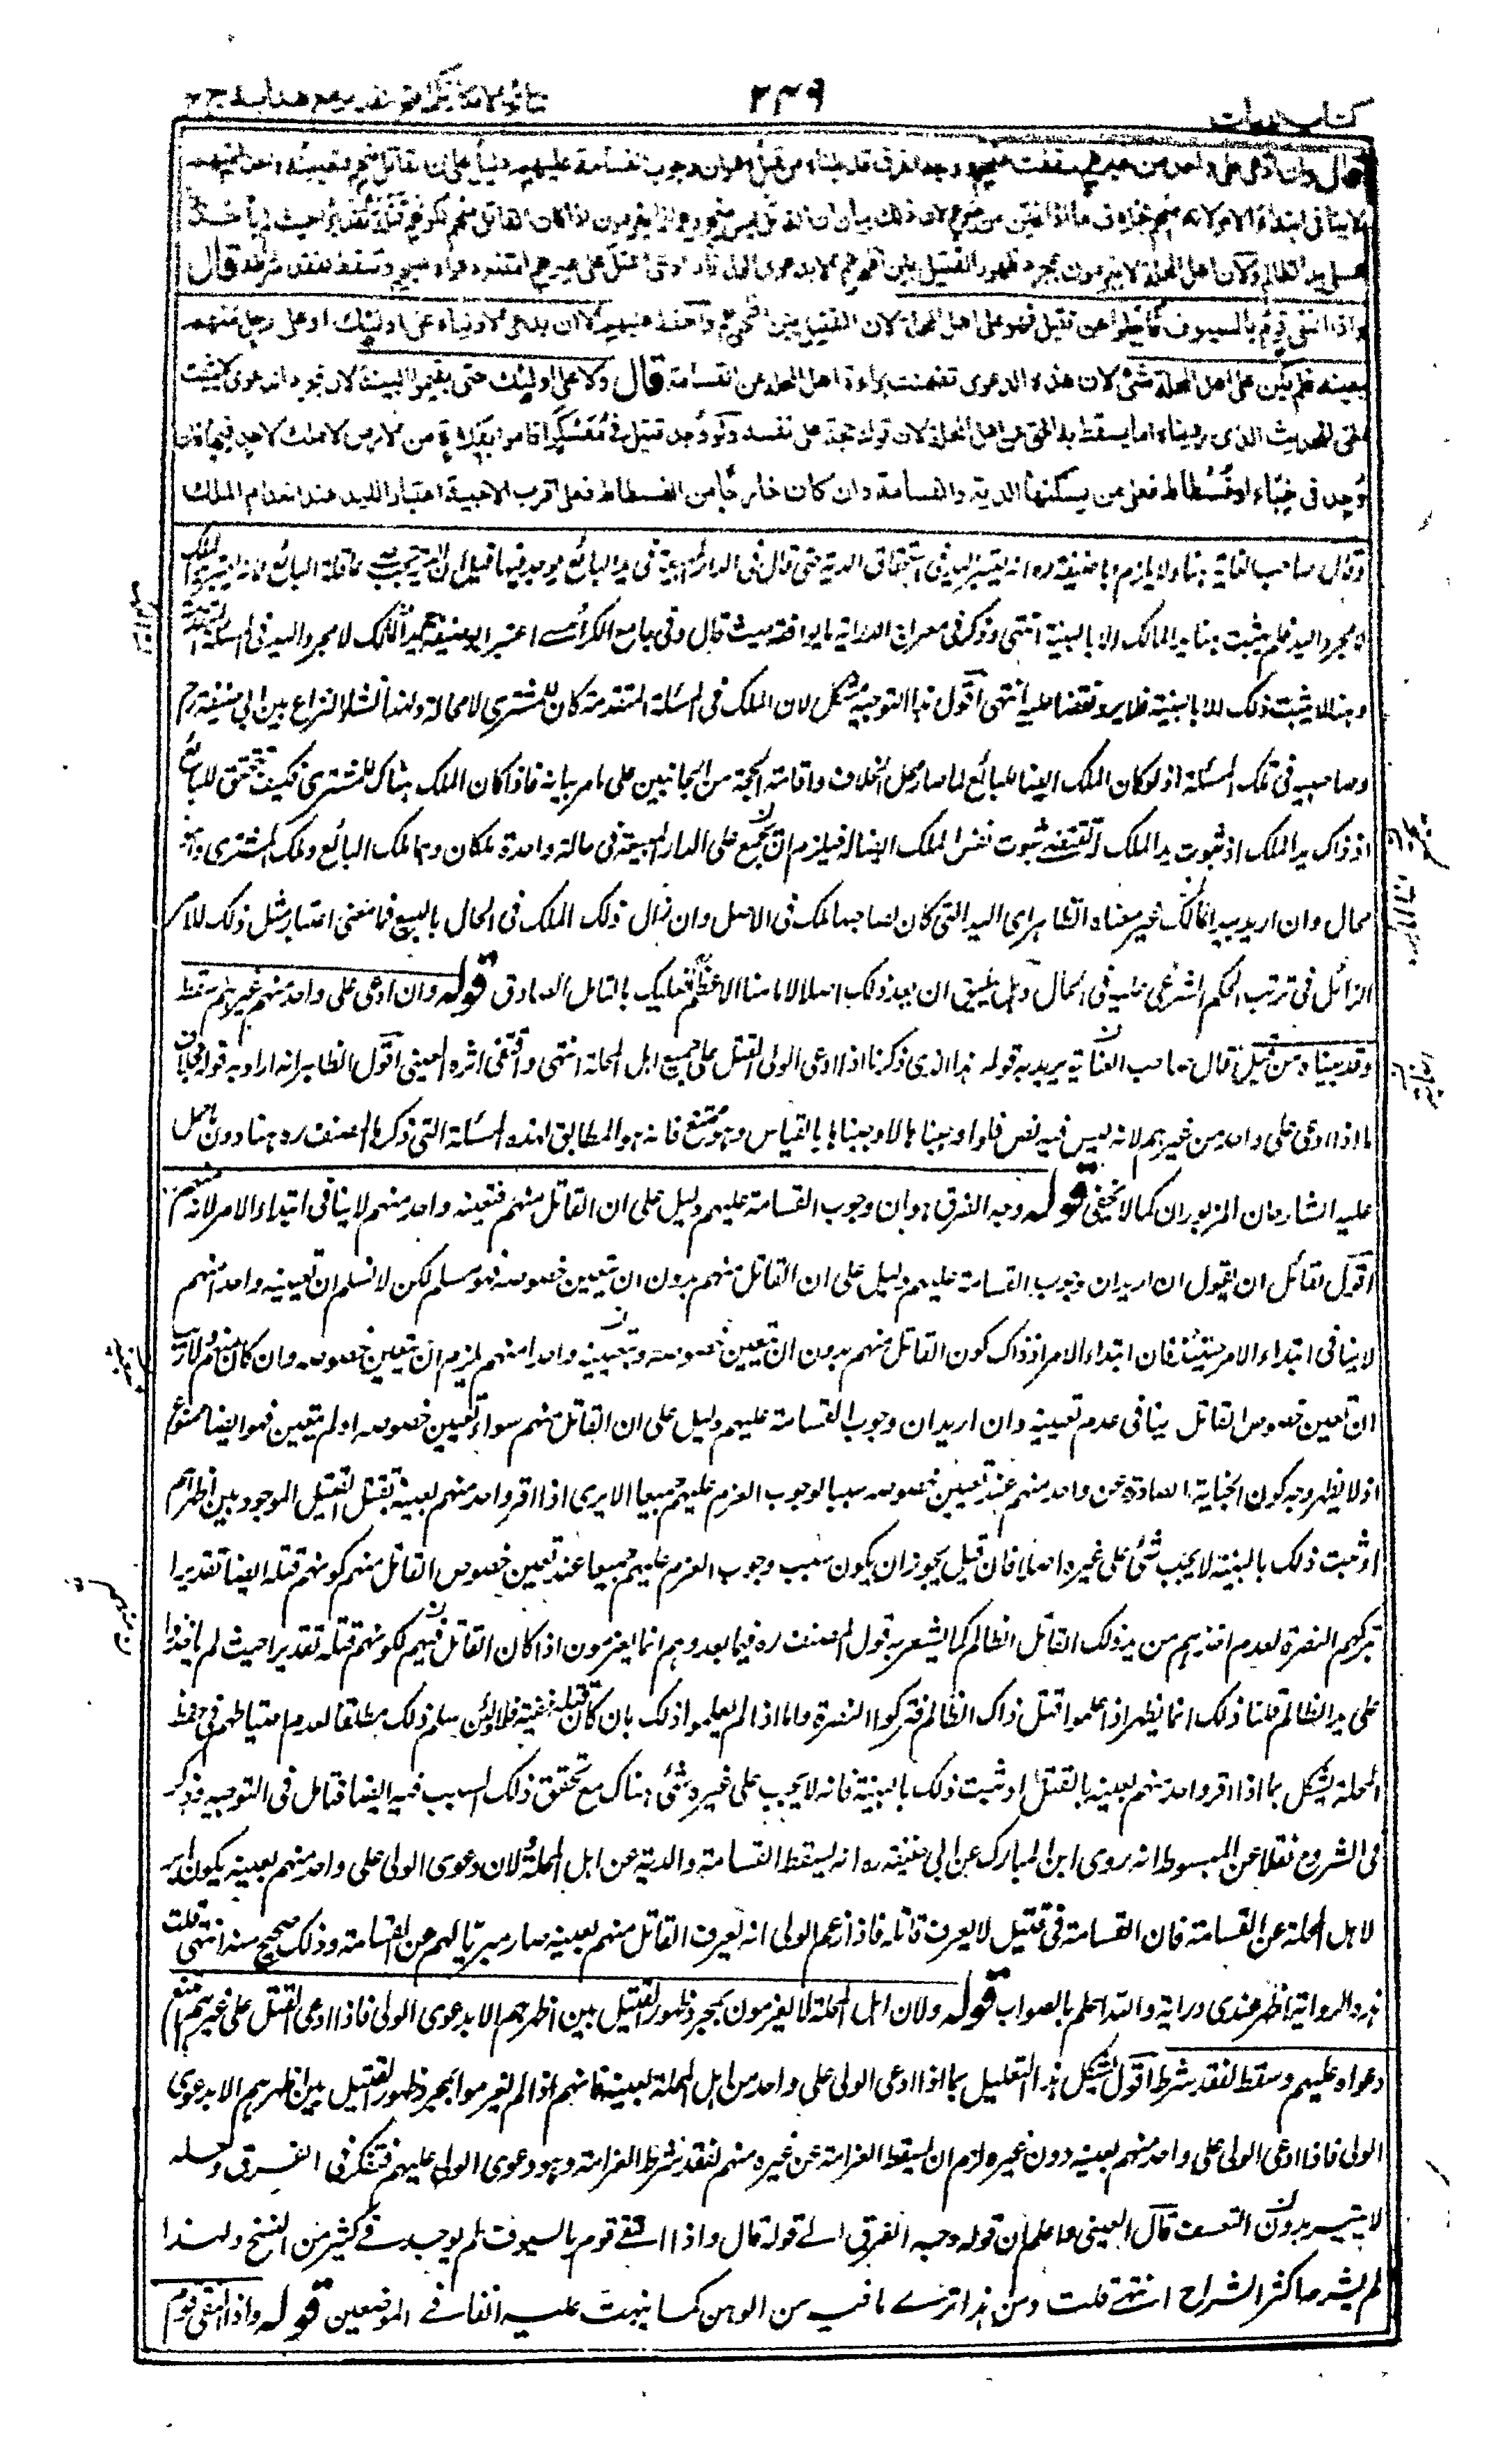 كتاب الديات
٣٤٩
قال وان ادعى على واحد من غيرهم سقط عنهم ووجه الفرق قد بيناه من قبل وهو ان وجوب القسامة عليهم دليل على ان القاتل منهم فتعيينه واحدا منهم
لا ينافي ابتداء الامر لانه منهم بخلاف ما اذا عين من غيرهم لان ذلك بيان ان القاتل ليس منهم وهم انما يغرمون اذا كان القاتل منهم لكونهم قتلة تقديرا حيث لم يأخذوا
على يد الظالم ولان اهل المحلة لا يغرمون بمجرد ظهور القتيل بين اظهرهم الا بدعوى الولي فاذا ادعى القتل على غيرهم امتنع دعواه عليهم وسقط لفقد شرطه قال
واذا التقى قوم بالسيوف فاجلوا عن قتيل فهو على اهل المحلة لان القتيل بين اظهرهم والحفظ عليهم الا ان يدعي الاولياء على اولئك او على رجل منهم
بعينه فلم يكن على اهل المحلة شئ لان هذه الدعوى تضمنت براءة اهل المحلة عن القسامة قال ولا على اولئك حتى يقيموا البينة لان بمجرد الدعوى لا يثبت
الحق للحديث الذي رويناه اما يسقط به الحق عن اهل المحلة لان قوله حجة على نفسه ولو وجد قتيل في معسكر اقاموا بفلاة من الارض لا ملك لاحد فيها فان
وجد في خباء او فسطاط فعلى من يسكنها الدية والقسامة وان كان خارجا من الفسطاط فعلى اقرب الاخبية اعتبارا لليد عند انعدام الملك
وقال صاحب الغاية هنا ولا يلزم ابا حنيفة ره انه يعتبر اليد في استحقاق الدية حتى قال في الدار المبيعة في يد البائع يوجد فيها قتيل ان الدية تجب على عاقلة البائع لانه يعتبر يد الملك
لا مجرد اليد فلم يثبت هنا يد المالك الا بالبينة انتهى وذكر في معراج الدراية ما يوافقه حيث قال وفي جامع الكرابيسي اعتبر ابو حنيفة يد الملك لا مجرد اليد في المسئلة المتقدمة
وهنا لا يثبت ذلك الا بالبينة فلا يرد نقضا عليه انتهى اقول هذا التوجيه مشكل لان الملك في المسئلة المتقدمة كان للمشتري لا محالة ولهذا نشأ النزاع بين ابي حنيفة رح
وصاحبيه في تلك المسئلة اذ لو كان الملك ايضا للبائع لما صار محل الخلاف واقامة الحجة من الجانبين على ما مر بيانه فاذا كان الملك هناك للمشتري فكيف يتحقق للبائع
اذ ذاك يد الملك اذ ثبوت يد الملك تقتضي ثبوت نفس الملك ايضا له فيلزم ان يجتمع على الدار المبيعة في حالة واحدة ملكان وهما ملك البائع وملك المشتري وانه
محال وان اريد بيد المالك غير معناه الظاهر اي اليد التي كان لصاحبها ملك في الاصل وان زال ذلك الملك في الحال بالبيع فما معنى اعتبار مثل ذلك الامر
الزائل في ترتب الحكم الشرعي عليه في الحال وهل يليق ان يعد ذلك اصلا لامامنا الاعظم فعليك بالتامل الصادق قوله وان ادعى على واحد منهم غيرهم سقط
وقد بيناه من قبل قال صاحب العناية يريد به قوله هذا الذي ذكرنا اذا ادعى الولي القتل على جميع اهل المحلة انتهى واقتفى اثره العيني اقول الظاهر انه اراد به قوله بخلاف
ما اذا ادعى على واحد من غيرهم لانه ليس فيه نص فلو اوجبناها لاوجبناها بالقياس وهو ممتنع فانه هو المطابق لهذه المسئلة التي ذكرها المصنف ره هنا دون ما حمل
عليه الشارحان المزبوران كما لا يخفى قوله ووجه الفرق هو ان وجوب القسامة عليهم دليل على ان القاتل منهم فتعيينه واحد منهم لا ينافي ابتداء الامر لانه منهم
اقول لقائل ان يقول ان اريد ان وجوب القسامة عليهم دليل على ان القاتل منهم بدون ان يتعين خصوصه فهو مسلم لكن لا نسلم ان تعيينه واحدا منهم
لا ينافي ابتداء الامر حينئذ فان ابتداء الامر اذ ذاك كون القاتل منهم بدون ان يتعين خصوصه وبتعيينه واحدا منهم يلزم ان يتعين خصوصه وان كان منهم ولا ريب
ان تعين خصوص القاتل ينافي عدم تعيينه وان اريد ان وجوب القسامة عليهم دليل على ان القاتل منهم سواء تعين خصوصه او لم يتعين فهو ايضا ممنوع
اذ لا يظهر وجه كون الجناية الصادرة عن واحد منهم عند تعين خصوصه سببا لوجوب الغرم عليهم جميعا الا يرى اذا اقر واحد منهم بعينه بقتل القتيل الموجود بين اظهرهم
او ثبت ذلك بالبينة لا يجب شئ على غيره اصلا فان قيل يجوز ان يكون سبب وجوب الغرم عليهم جميعا عند تعين خصوص القاتل منهم كونهم قتلة ايضا تقديرا
بتركهم النصرة لعدم اخذهم من يد ذلك القاتل الظالم كما يشعر به قول المصنف ره فيما بعد وهم انما يغرمون اذا كان القاتل فيهم لكونهم قتلة تقديرا حيث لم ياخذوا
على يد الظالم قلنا ذلك انما يظهر اذا علموا قتل ذاك الظالم فتركوا النصرة واما اذا لم يعلموا ذلك بان كان قتله خفية فلا ولئن سلم ذلك مطلقا لعدم احتياطهم في حفظ
المحلة يشكل بما اذا اقر واحد منهم بعينه بالقتل او ثبت ذلك بالبينة فانه لا يجب على غيره شئ هناك مع تحقق ذلك السبب فيه ايضا فتامل في التوجيه وذكر
في الشروح نقلا عن المبسوط انه روى ابن المبارك عن ابي حنيفة ره انه يسقط القسامة والدية عن اهل المحلة لان دعوى الولي على واحد منهم بعينه يكون ابراء
لاهل المحلة عن القسامة فان القسامة في قتيل لا يعرف قاتله فاذا زعم الولي انه يعرف القاتل منهم بعينه صار مبريا لهم عن القسامة وذلك صحيح منه انتهى قلت
هذه الرواية اظهر عندي دراية والله اعلم بالصواب قوله ولان اهل المحلة لا يغرمون بمجرد ظهور القتيل بين اظهرهم الا بدعوى الولي فاذا ادعى القتل على غيرهم امتنع
دعواه عليهم وسقط لفقد شرط اقول يشكل هذا التعليل بما اذا ادعى الولي على واحد من اهل المحلة بعينه فانهم اذا لم يغرموا بمجرد ظهور القتيل بين اظهرهم الا بدعوى
الولي فاذا ادعى الولي على واحد منهم بعينه دون غيره لزم ان يسقط الغرامة عن غيره منهم لفقد شرط الغرامة وهو دعوى الولي عليهم فتفكر في الفرق ولعله
لا يتيسر بدون التعسف قال العيني واعلم ان قوله وجه الفرق الى قوله قال واذا التقى قوم بالسيوف لم يوجد في كثير من النسخ ولهذا
لم يشرحه اكثر الشراح انتهى قلت ومن هذا ترى ما فيه من الوهن كما نبهت عليه انفا في الموضعين قوله واذا التقى قوم